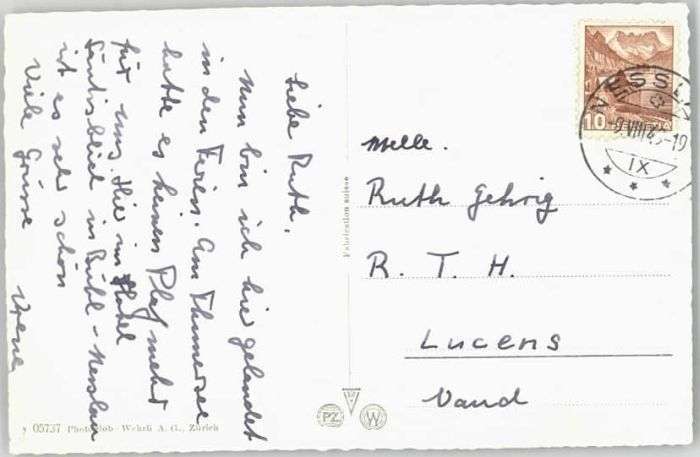 Liebe Ruth,
Nun bin ich hier gelandet
in den Ferien. Am Thunersee
hatte es keinen Platz mehr
für uns. Hier im Hotel
Säntisblick in Bühl-Nesslau
ist es sehr schön
Viele Grüsse
Vrene
Melle.
Ruth Gehrig
R. T. H.
Lucens
Vaud
10
NESSL
VIII 4
-19
IX
Fabrication suisse
PZ
W
y 05737 Photoglob-Wehrli A. G., Zürich